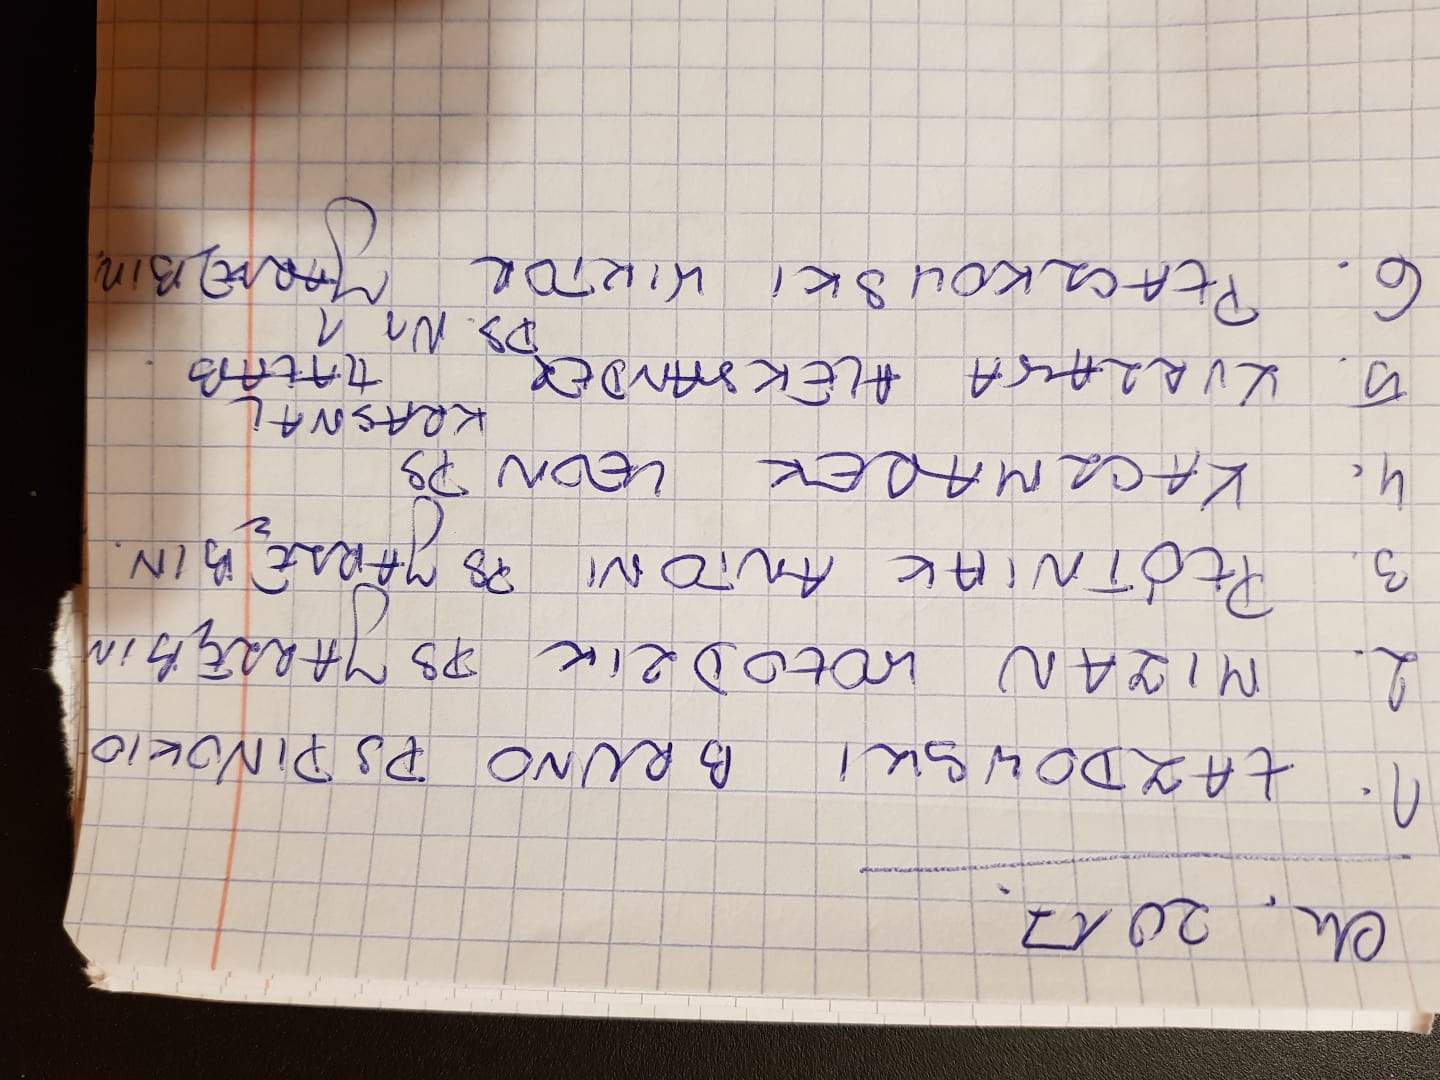 Ch. 2017.
1. ŁAZDOWSKI BRUNO PS PINOKIO
2. MIZAN WŁODZIK PS JARZĘBIN
3. PŁÓTNIAK ANTONI PS JARZĘBIN.
4. KACZMAREK LEON PS
KRASNAL
5. KURZAWA ALEKSANDER
PS. Nr 1
6. PŁACZKOWSKI WIKTOR JARZĘBIN.